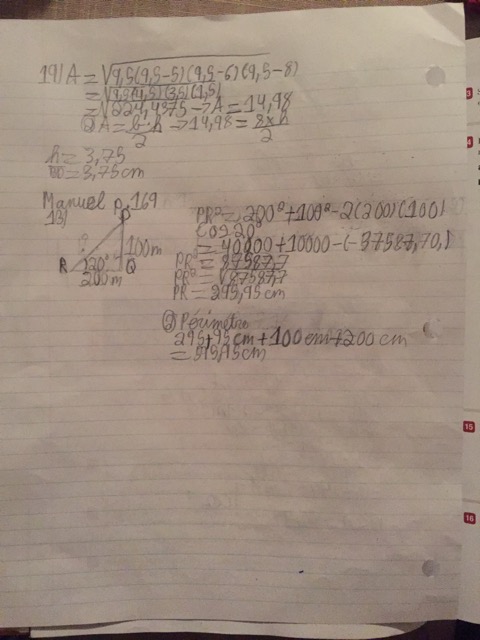 19) A = √9,5(9,5-5)(9,5-6)(9,5-8)
= √9,5(4,5)(3,5)(1,5)
= √224,4375 → A = 14,98
② A = b·h/2 → 14,98 = 8×h/2
h = 3,75
= 3,75cm
Manuel p. 169
13)
P
?
100m
R 120° Q
200m
PR² = 200² + 100² - 2(200)(100)
cos 20°
= 40000 + 10000 - (-37587,70)
PR² = 87587,7
PR² = √87587,7
PR = 295,95 cm
② Périmètre
295,95 cm + 100 cm + 200 cm
= 595,95 cm
3
4
15
16